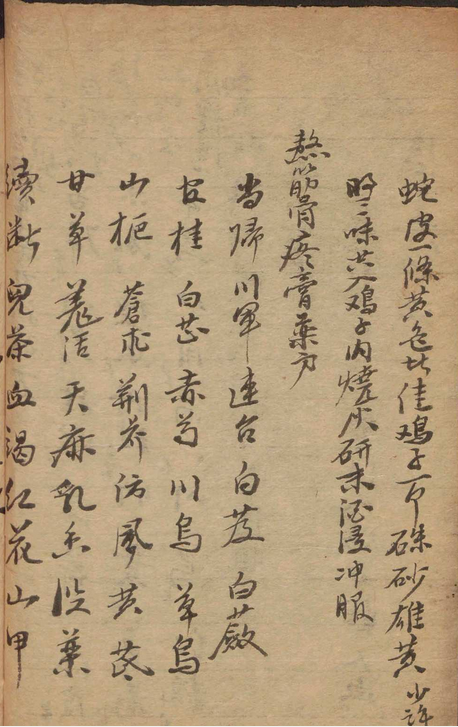 蛇皮一條黄色者佳鸡子一个硃砂雄黄少許
三味共入鸡子内燒灰研末酒浸冲服
熬筋骨疼膏藥方
当帰川軍連台白芨白蘞
官桂白芷赤芍川烏草烏
山栀蒼朮荆芥防風黄芪
甘草羌活天麻乳香没藥
續断兒茶血竭红花山甲